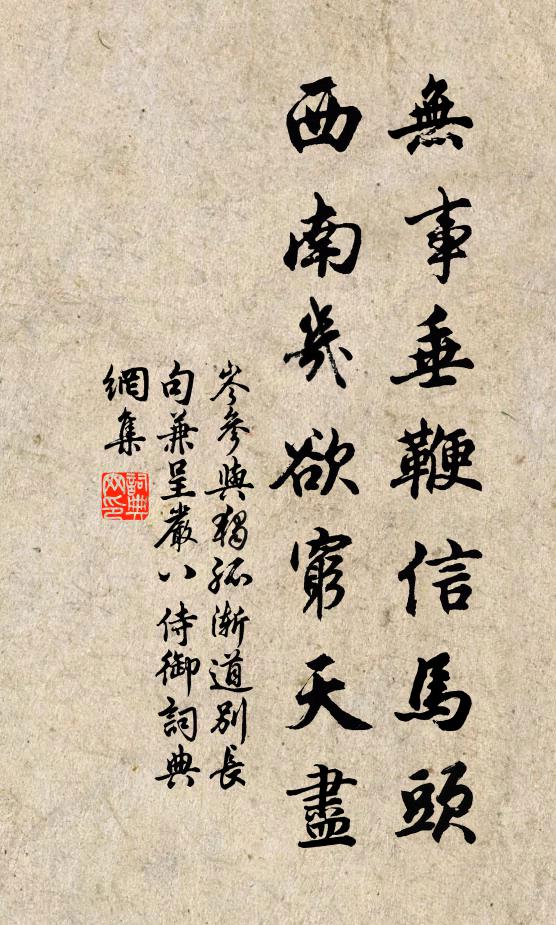 無事垂鞭信馬頭
西南幾欲窮天盡
岑參與獨孤漸道別長
句兼呈嚴八侍御詞典
網集
詞典
網印